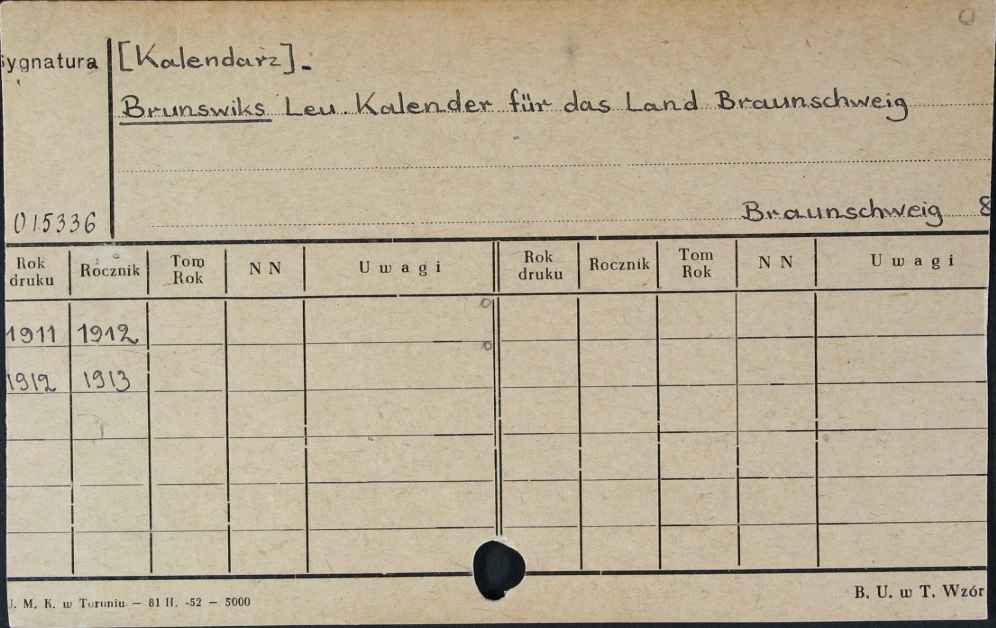 Sygnatura [Kalendarz].
Brunswiks Leu. Kalender für das Land Braunschweig
015336 Braunschweig 8
Rok druku Rocznik Tom Rok NN Uwagi Rok druku Rocznik Tom Rok NN Uwagi
1911 1912
1912 1913
U. M. K. w Toruniu — 81 II. -52 — 5000 B. U. w T. Wzór